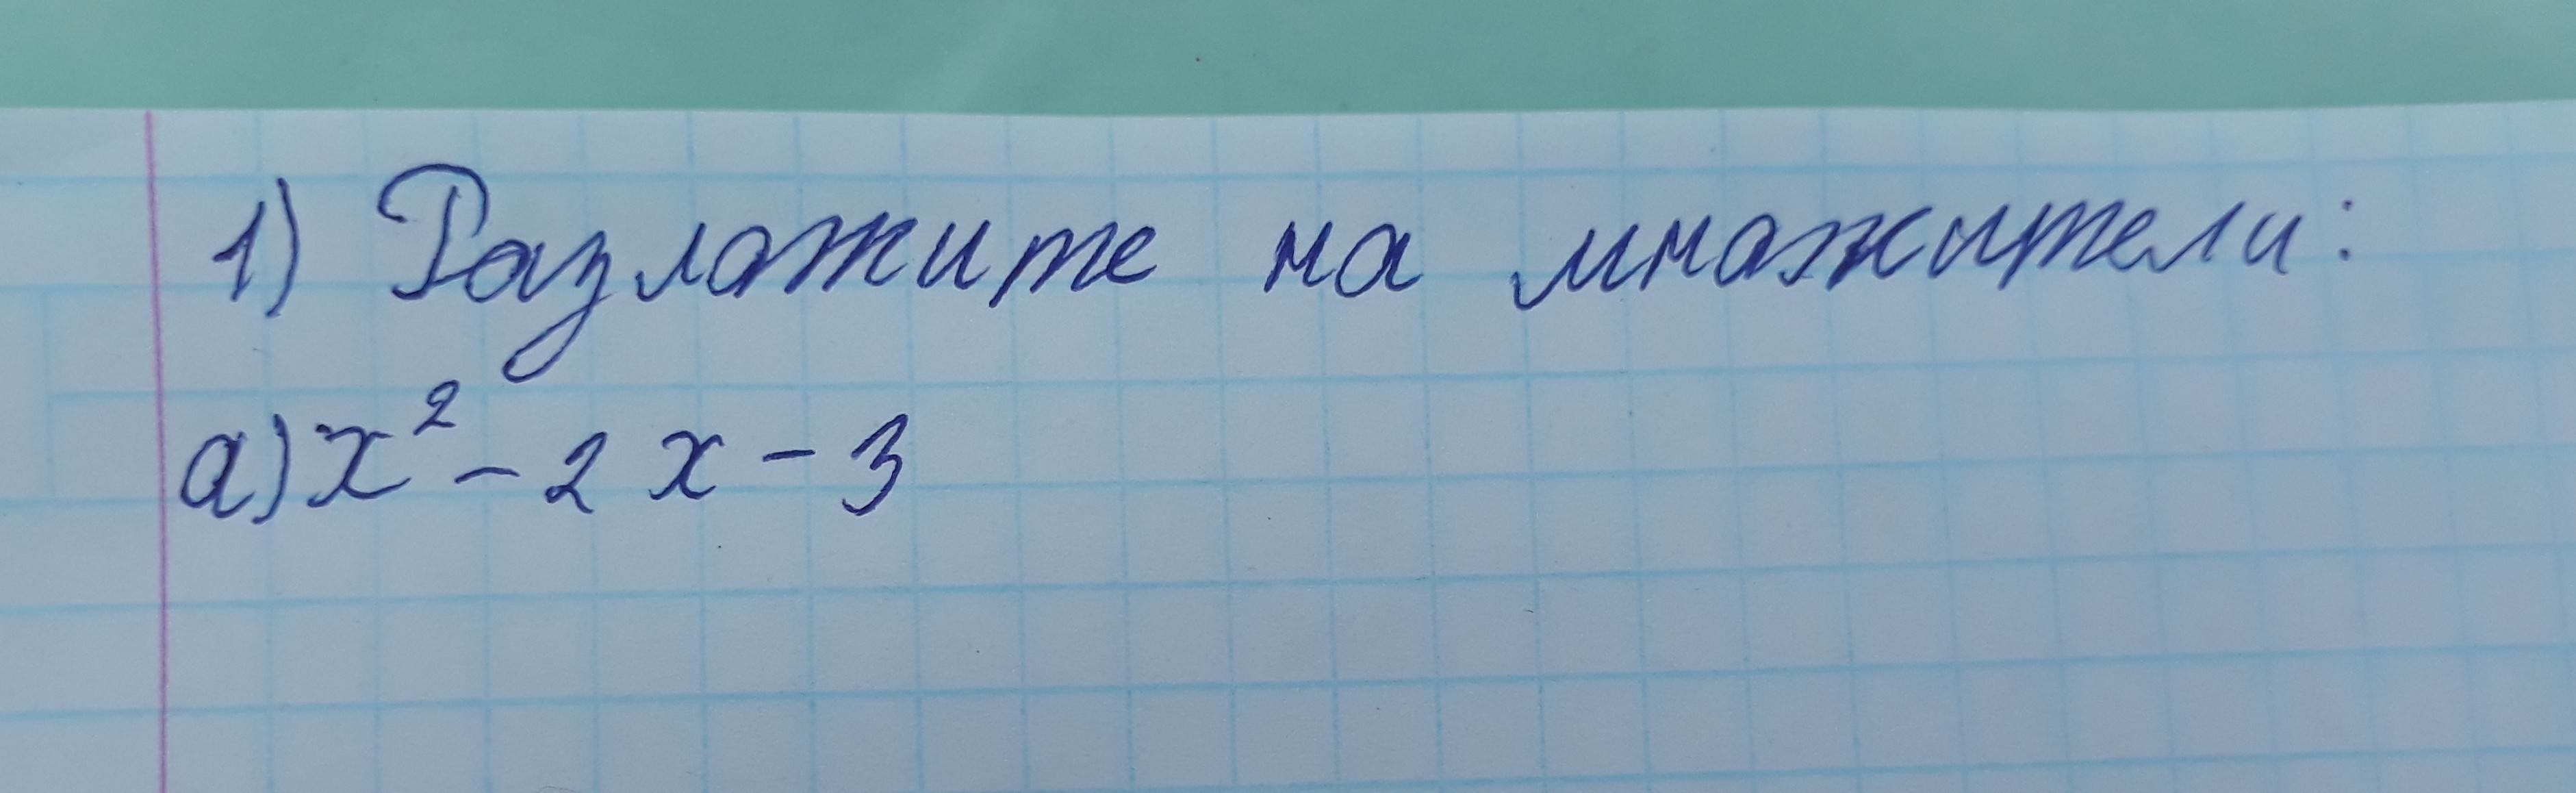 1) Разложите на множители:
а) x² - 2x - 3